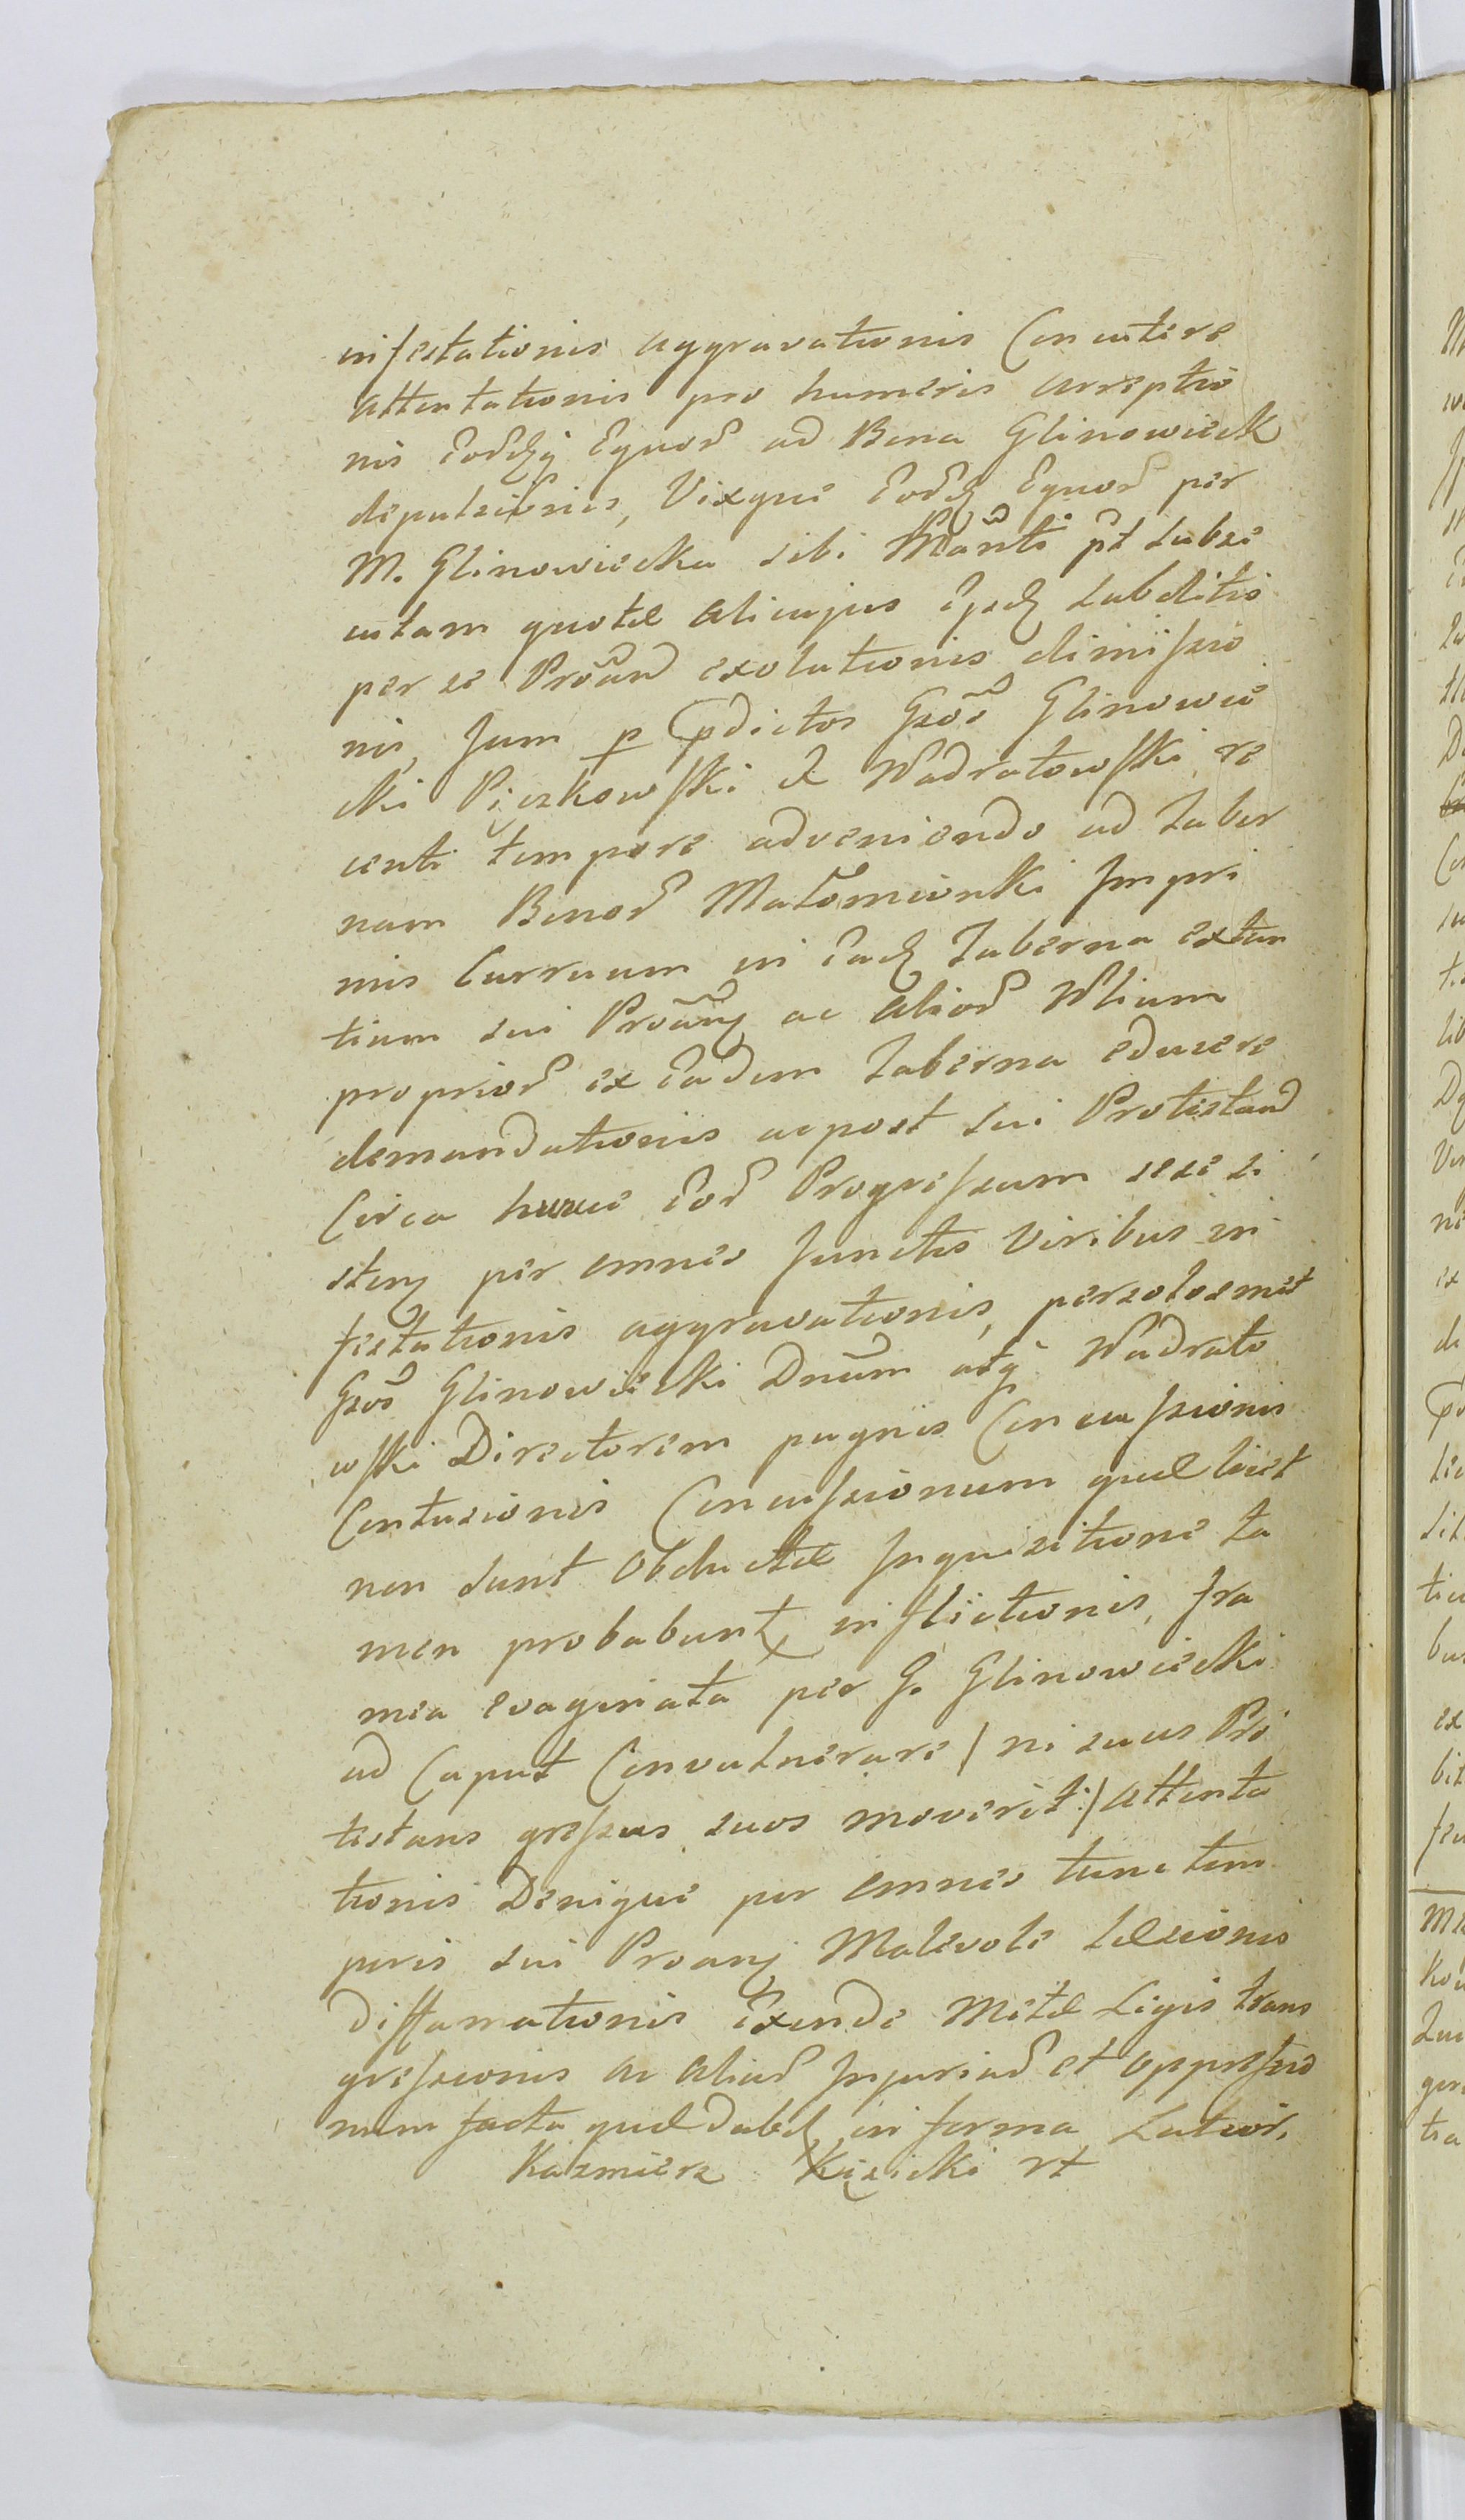 infestationis aggravationis Concutere
attentationis pro humeris arreptio
nis Equor ad Bona Glinowieck
depulsionis, Vixque Equor per
M. Glinowiecka sibi Manti pt subse
cutam quotæ alicujus subditis
per se exolutionis dimissio
nis, Jum p pdictos Gsos Glinowie
cki Pięczkowski & Wądrałowski re
centi tempore adveniendo ad Taber
nam Bonor Małomionki Impri
mis Curruum in Taberna extan
tium sui ac alior Wlium
proprior ex eadem Taberna educere
demandationis ac post sui Protestand
Circa Progressum sese si
sten per omnes Junctis Viribus in
festationis aggravationis, persolosmet
Gsos Glinowiecki Dnum atq Wądrało
wski Directorem pugnis Concussionis
Contusionis Concussionum quæ licet
non sunt obductæ Inquisitione ta
men probabunt inflictionis, fra
mea evaginata per G. Glinowiecki
ad Caput Convulnerare / ni suus Pro
testans gressus suos moverit :/ attenta
tionis Denique per omnes tunc tem
poris sui Proan Malevole læsionis
Diffamationis Exinde Metæ Legis trans
gressionis ac aliar Injuriar et oppressio
num facta quæ dabt in forma Latior.
Kazmierz Kęsicki rt